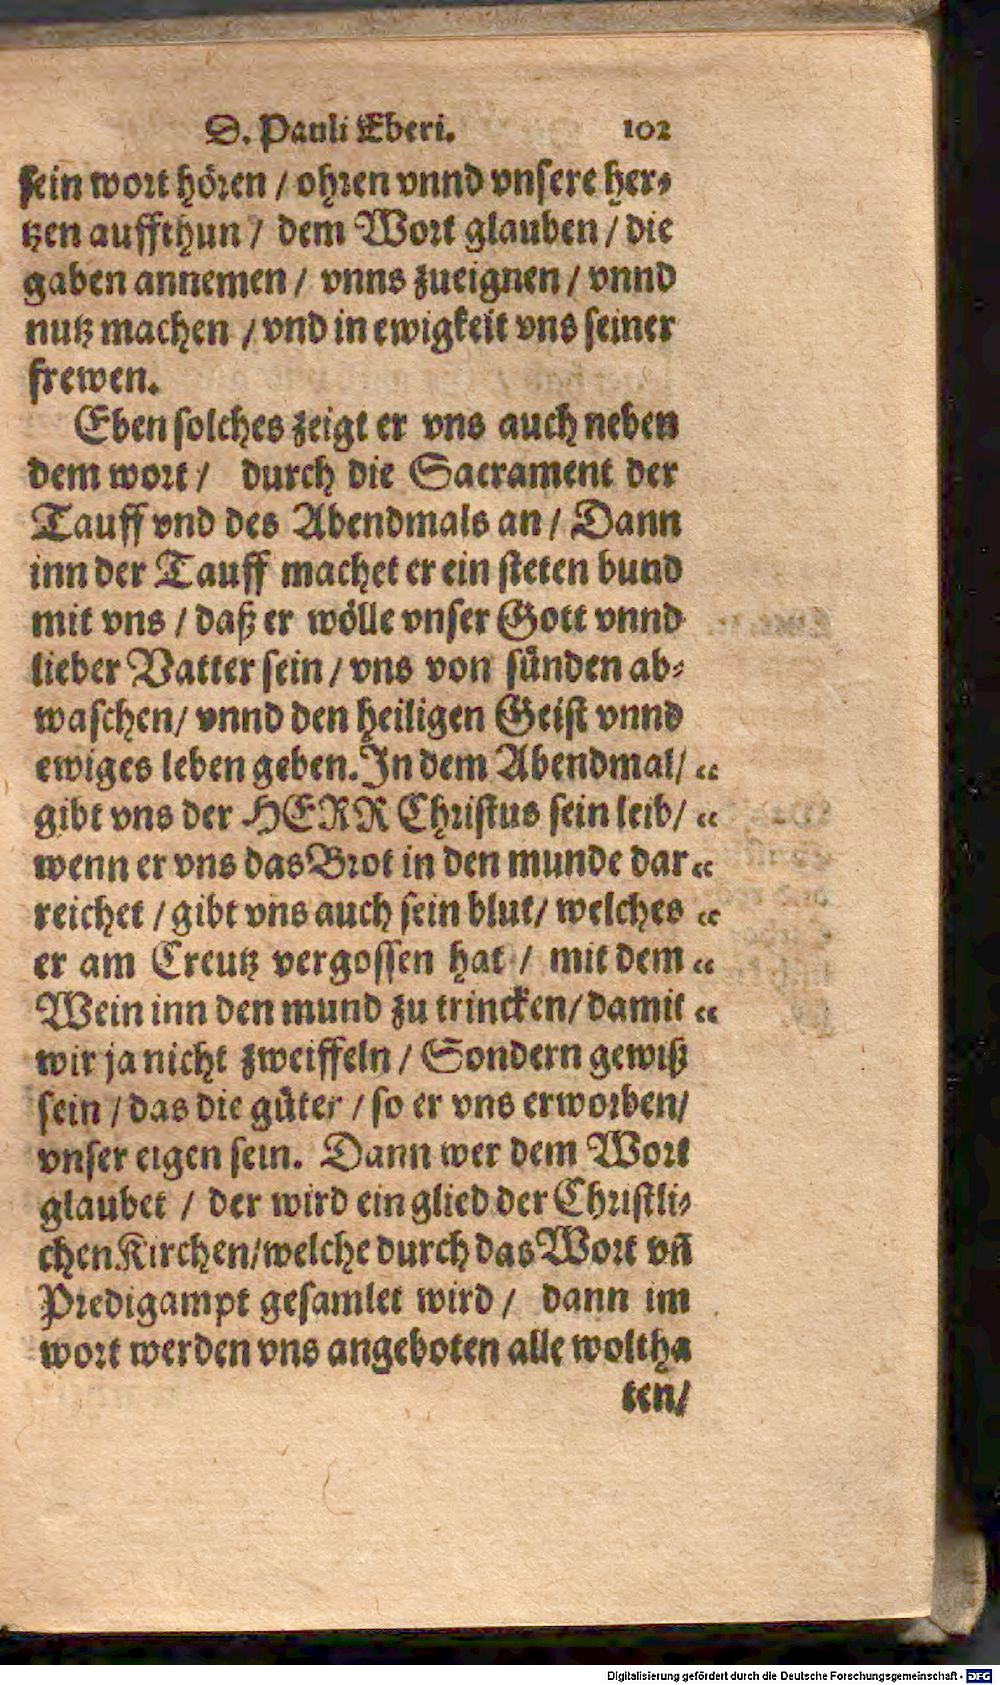 D. Pauli Eberi. 102
sein wort hören / ohren vnnd vnsere her⸗
tzen auffthun / dem Wort glauben / die
gaben annemen / vnns zueignen / vnnd
nutz machen / vnd in ewigkeit vns seiner
frewen.
Eben solches zeigt er vns auch neben
dem wort / durch die Sacrament der
Tauff vnd des Abendmals an / Dann
inn der Tauff machet er ein steten bund
mit vns / daß er wölle vnser Gott vnnd
lieber Vatter sein / vns von sünden ab⸗
waschen / vnnd den heiligen Geist vnnd
ewiges leben geben. In dem Abendmal / “
gibt vns der HERR Christus sein leib / “
wenn er vns das Brot in den munde dar “
reichet / gibt vns auch sein blut / welches “
er am Creutz vergossen hat / mit dem “
Wein inn den mund zu trincken / damit “
wir ja nicht zweiffeln / Sondern gewiß
sein / das die güter / so er vns erworben /
vnser eigen sein. Dann wer dem Wort
glaubet / der wird ein glied der Christli⸗
chen Kirchen / welche durch das Wort vñ
Predigampt gesamlet wird / dann im
wort werden vns angeboten alle woltha
ten /
Digitalisierung gefördert durch die Deutsche Forschungsgemeinschaft - DFG